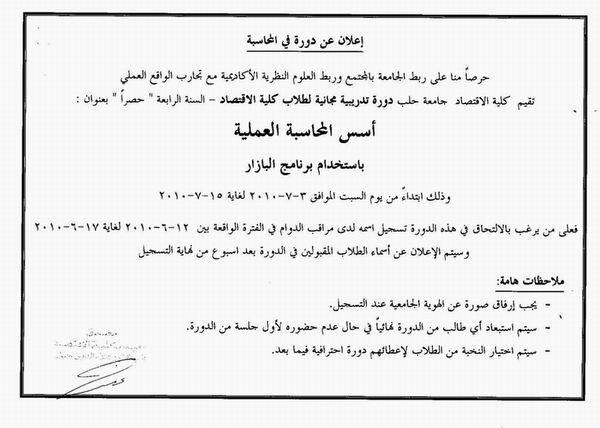 إعلان عن دورة في المحاسبة
حرصاً منا على ربط الجامعة بالمجتمع وربط العلوم النظرية الأكاديمية مع تجارب الواقع العملي
تقيم كلية الاقتصاد جامعة حلب دورة تدريبية مجانية لطلاب كلية الاقتصاد – السنة الرابعة " حصراً " بعنوان :
أسس المحاسبة العملية
باستخدام برنامج البازار
وذلك ابتداءً من يوم السبت الموافق ٣-٧-٢٠١٠ لغاية ١٥-٧-٢٠١٠
فعلى من يرغب بالالتحاق في هذه الدورة تسجيل اسمه لدى مراقب الدوام في الفترة الواقعة بين ١٢-٦-٢٠١٠ لغاية ١٧-٦-٢٠١٠
وسيتم الإعلان عن أسماء الطلاب المقبولين في الدورة بعد اسبوع من نهاية التسجيل
ملاحظات هامة:
- يجب إرفاق صورة عن الهوية الجامعية عند التسجيل.
- سيتم استبعاد أي طالب من الدورة نهائياً في حال عدم حضوره لأول جلسة من الدورة.
- سيتم اختيار النخبة من الطلاب لإعطائهم دورة احترافية فيما بعد.